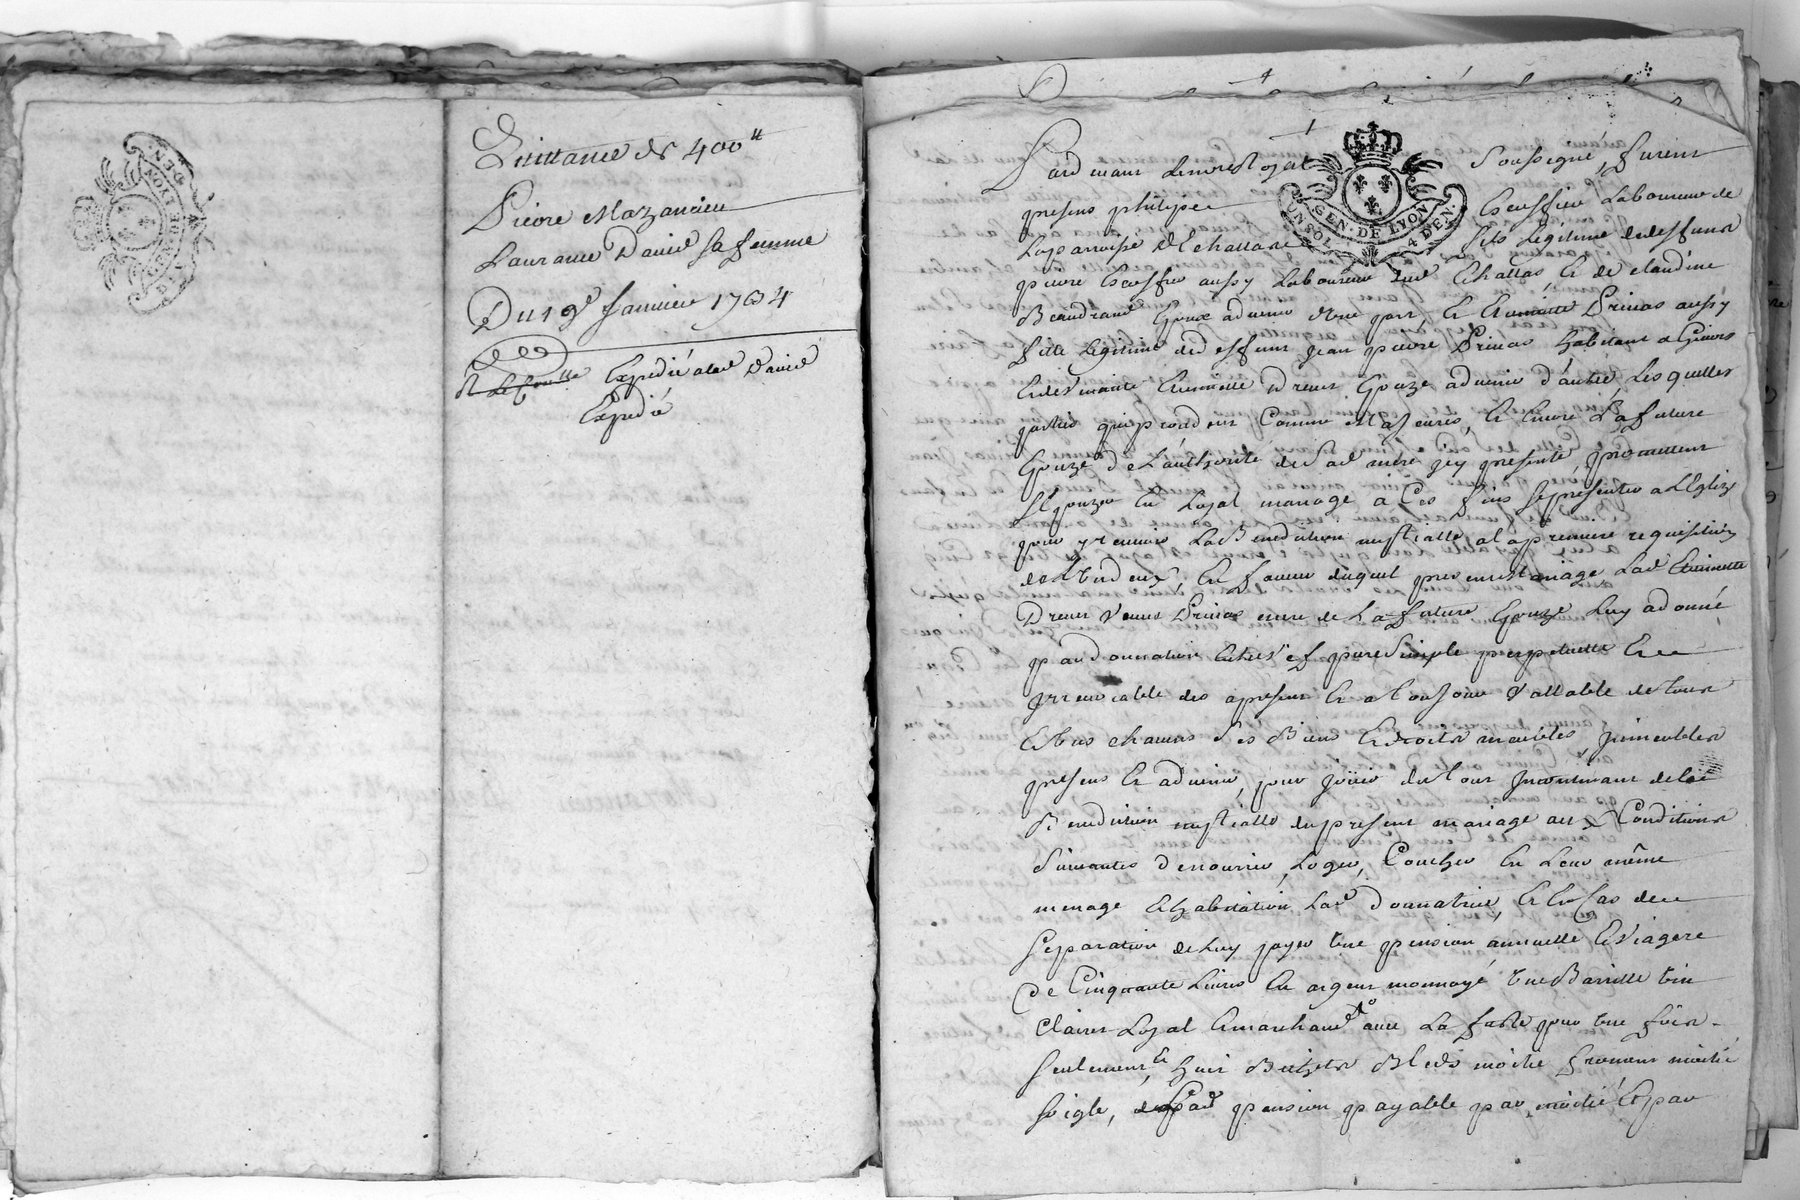 Quittance de 400ᵗᵗ
Pierre Mazancieu
Laurance David sa femme
Du 19ᵉ Janvier 1734
Expedié alad David
Expedié
GEN · DE LYON
UN SOL 4 DEN.
Pardevant Le no.re Royal soussigné, furent
presens philipe Tseissieu Laboureur de
la parroisse d'Echallas fils Legitime de deffunt
pierre Tseissieu aussy Laboureur dud Echallas et de claudine
Beaudrand Epoux advenir d'une part, Et Etiennette Privas aussy
fille Legitime de deffunt jean pierre Privas habitant a Givors
Et de vivante Etiennette Drevet Epouze advenir d'autre, Lesquelles
parties qui procedent Comme Majeures, Et Encore La future
Epouze de L'authorité de Sad mere icy presente, promettent
s'Epouzer En Loyal mariage a Ces fins se presenter a L'Eglize
pour y recevoir La Benediction nuptialle, a la premiere requisition
de L'un d'eux, En faveur duquel present mariage Lad Etiennette
Drevet veuve Privas mere de La future Epouze Luy a donné
par donnation Entre vifs pure Simple perpetuelle Et
jrrevocable des apresent Et a toujour vallable de tous
Et uns chacuns Ses Biens Et droits meubles jmmeubles
presens Et advenir, pour jouir du tout jncontinant de la
Benediction nuptialle du present mariage aux Conditions
Suivantes de nourrir, Loger, Coucher En Leur même
menage Et habitation Lad donnatrice, Et En Cas de
separation de Luy payer une pension annuelle Et viagere
de Cinquante Livres En argent monnoyé une Barrille vin
clairet Loyal Et marchand avec La futte pour une fois
seulement, Et huit Bichets Bleds moitié froment moitié
seigle, Lad pension payable par moitié Et par